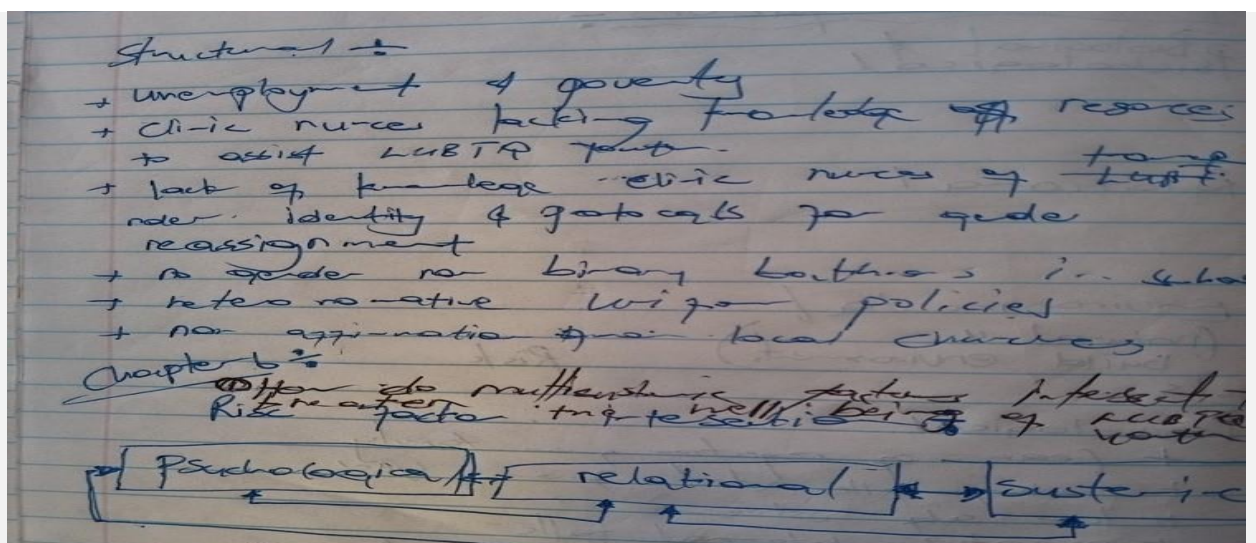 Structural :
+ unemployment & poverty
+ clinic nurses lacking knowledge resources
to assist LGBTQ youth.
+ lack of knowledge clinic nurses of trans
nder identity & protocals for gender
reassignment
+ no gender non binary bathrooms in schoo
+ heteronormative uniform policies
+ non affirmation from local churches
Chapter 6 :
How do multisystemic factors intersect
Risk factor intersection well being of LGBTQ
youth
Psychological relational Systemic